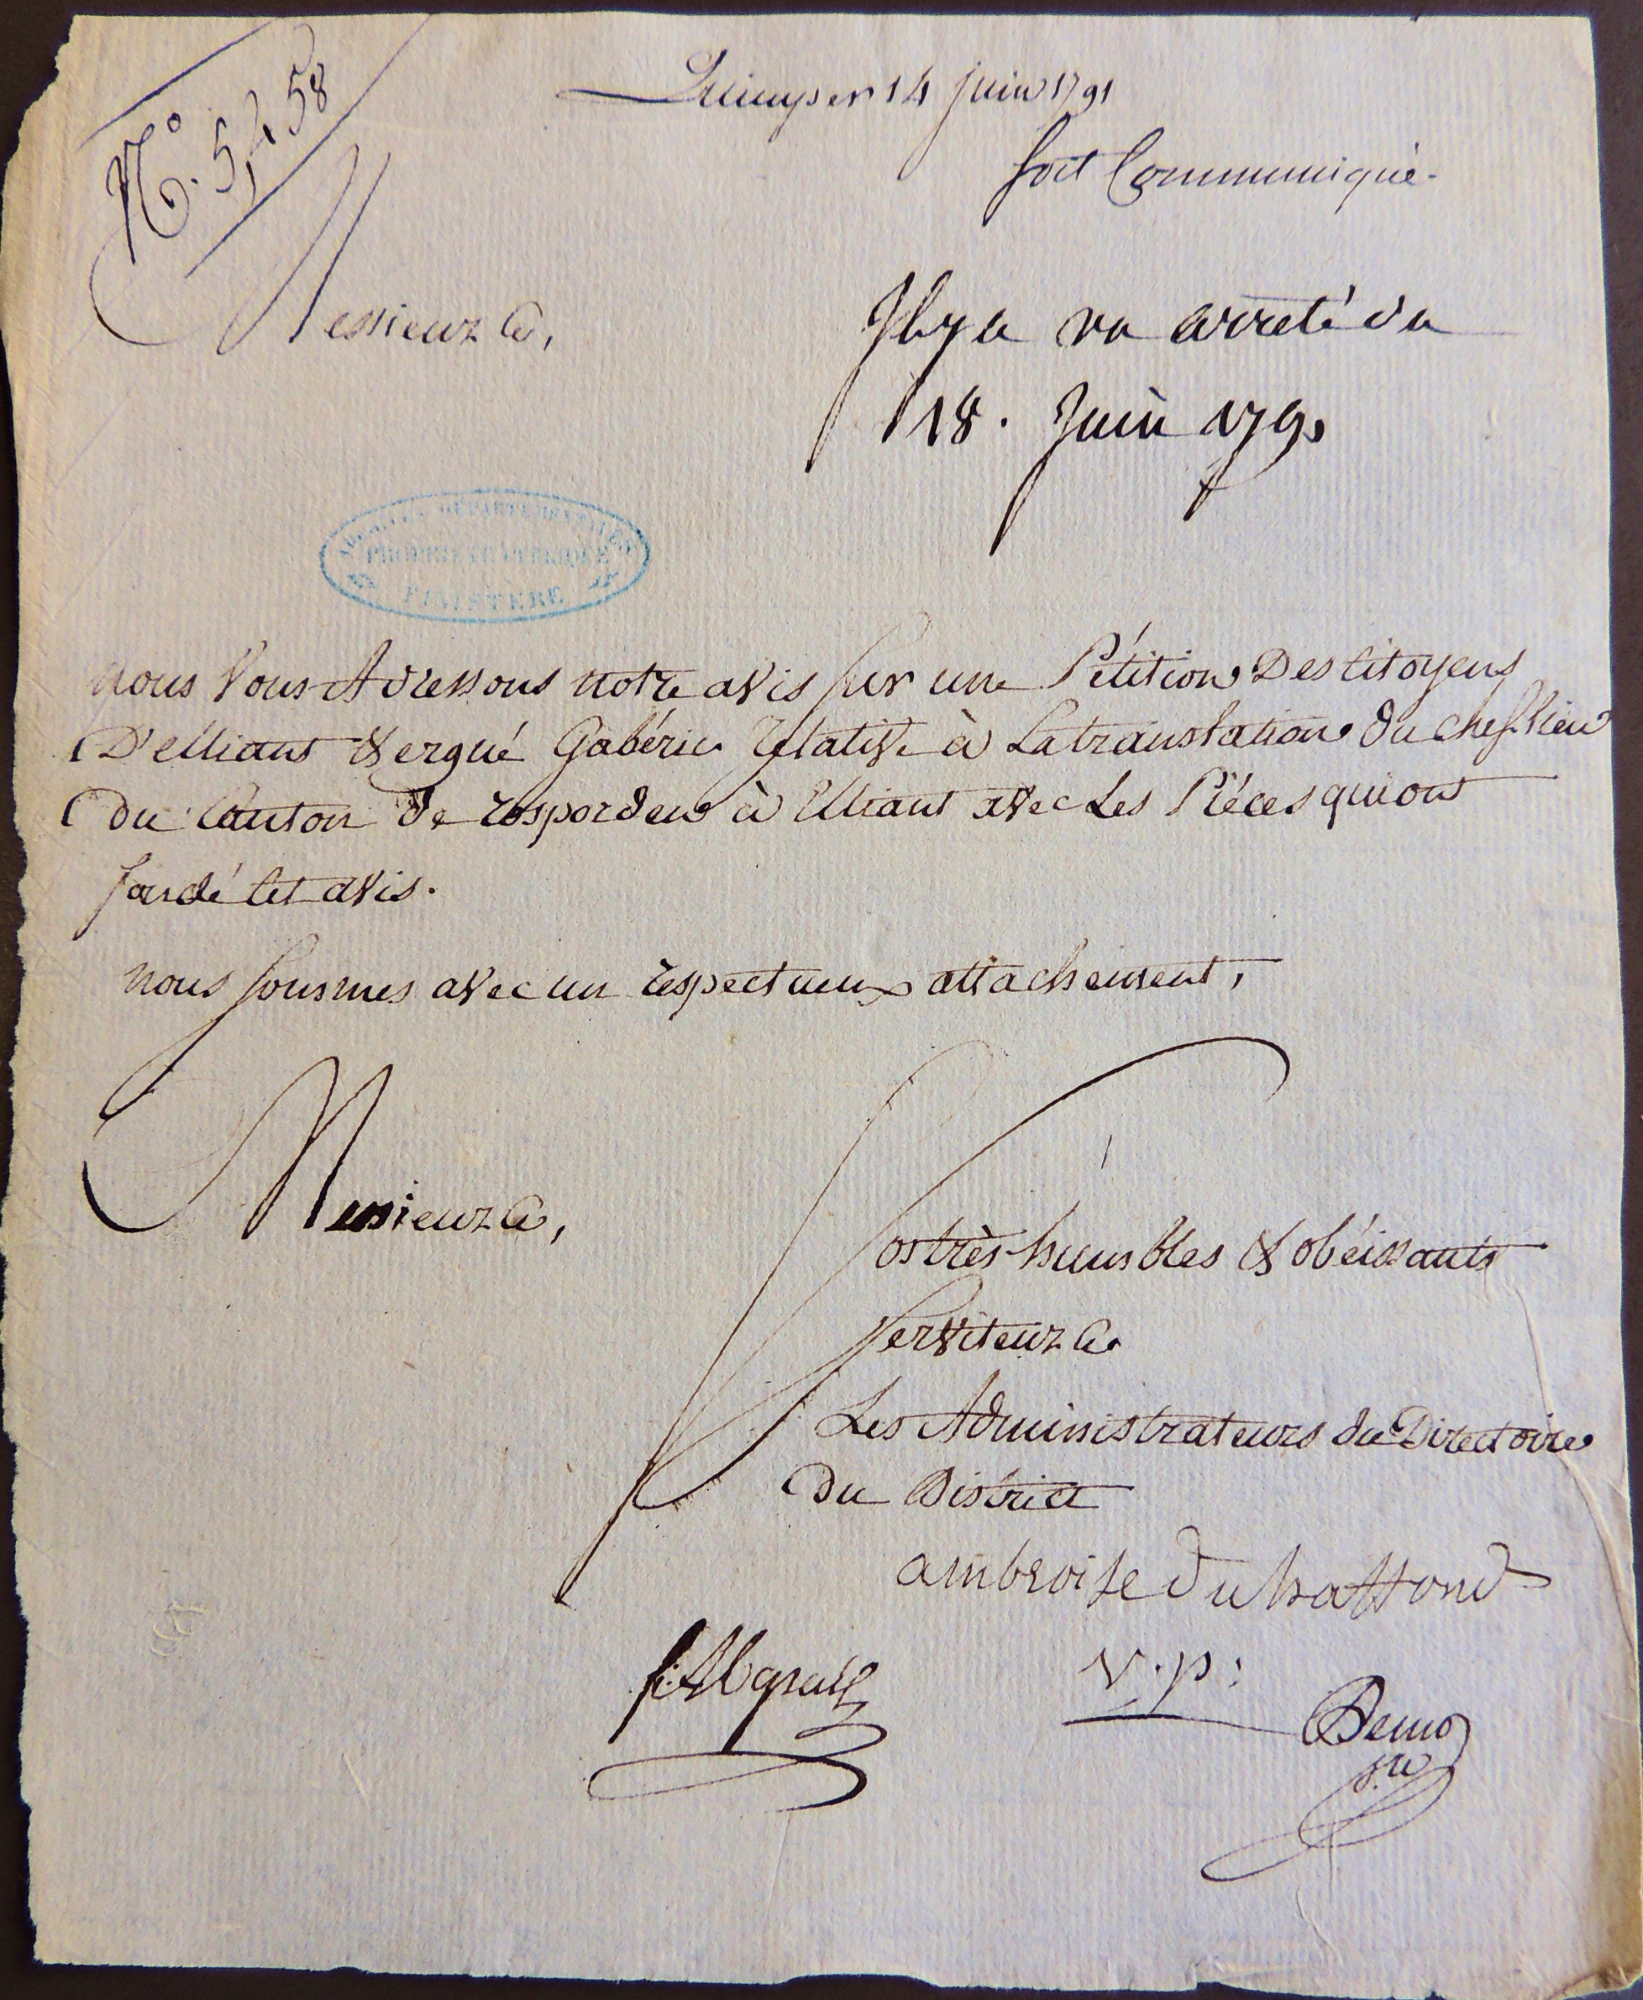 N.o 5,458
Quimper 14 juin 1791
soit Communiqué.
Messieurs,
Il y a un arreté du
18. Juin 1791
ARCHIVES DÉPARTEMENTALES
PROPRIÉTÉ PUBLIQUE
FINISTÈRE
nous Vous Adressons notre avis sur une Pétition Des Citoyens
D'elliant & ergué Gabéric Relative à La translation du chef lieu
du Canton de rosporden à Elliant avec Les Piéces qui ont
fondé Cet avis.
nous sommes avec un respectueux attachement,
Messieurs,
Vos très humbles & obéissants
serviteurs
Les Administrateurs du Directoire
du District
ambroise du haffond
v.p: